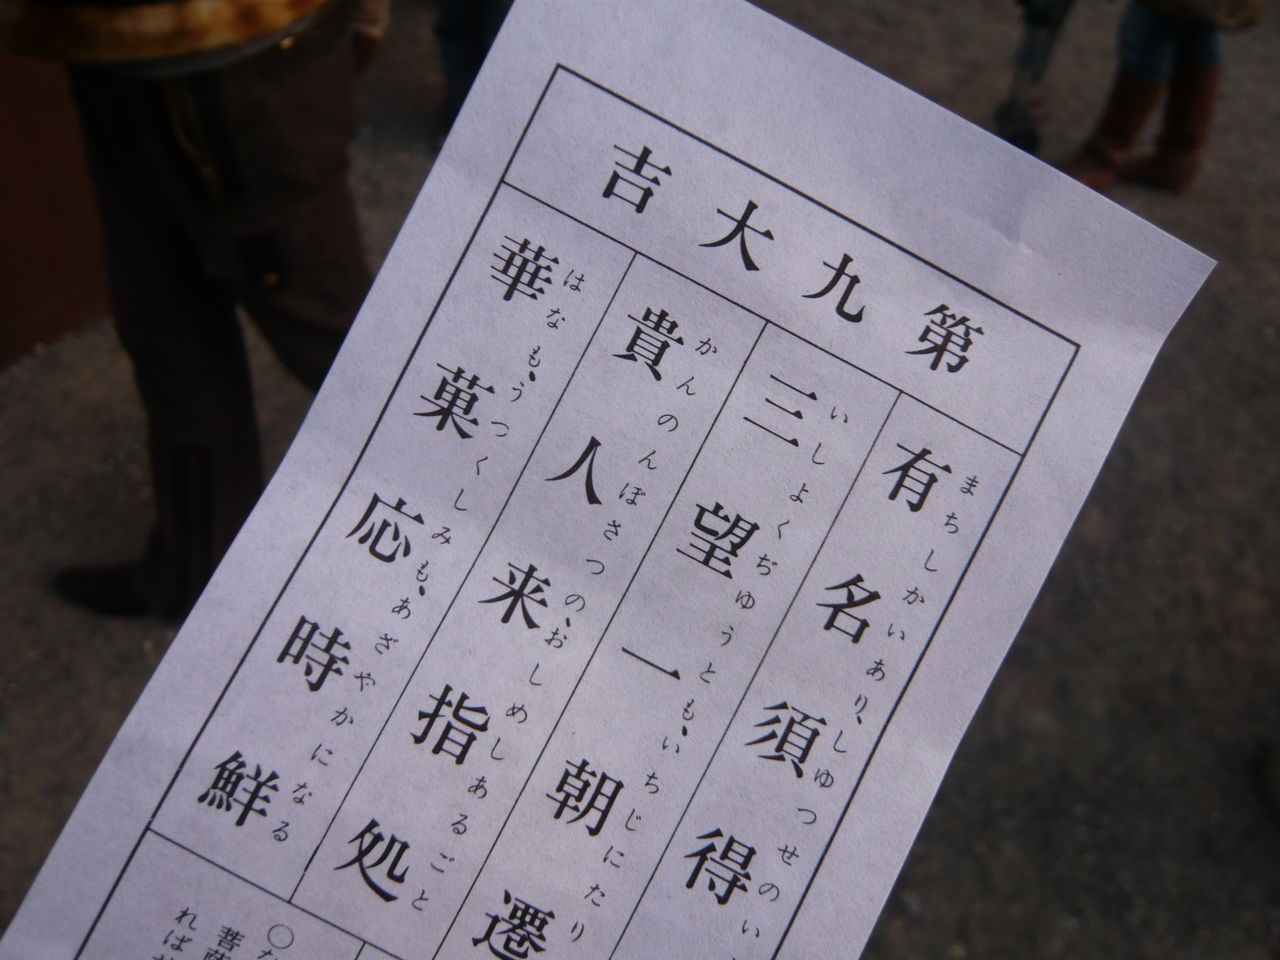 第九大吉
有名須得
まちしかいあり、しゆつせのい
三望一朝遷
いしよくぢゆうとも、いちじにたり
貴人来指処
かんのんぼさつの、おしめしあるごと
華菓応時鮮
はなも、うつくしみも、あざやかになる
○な
菩薩
れば